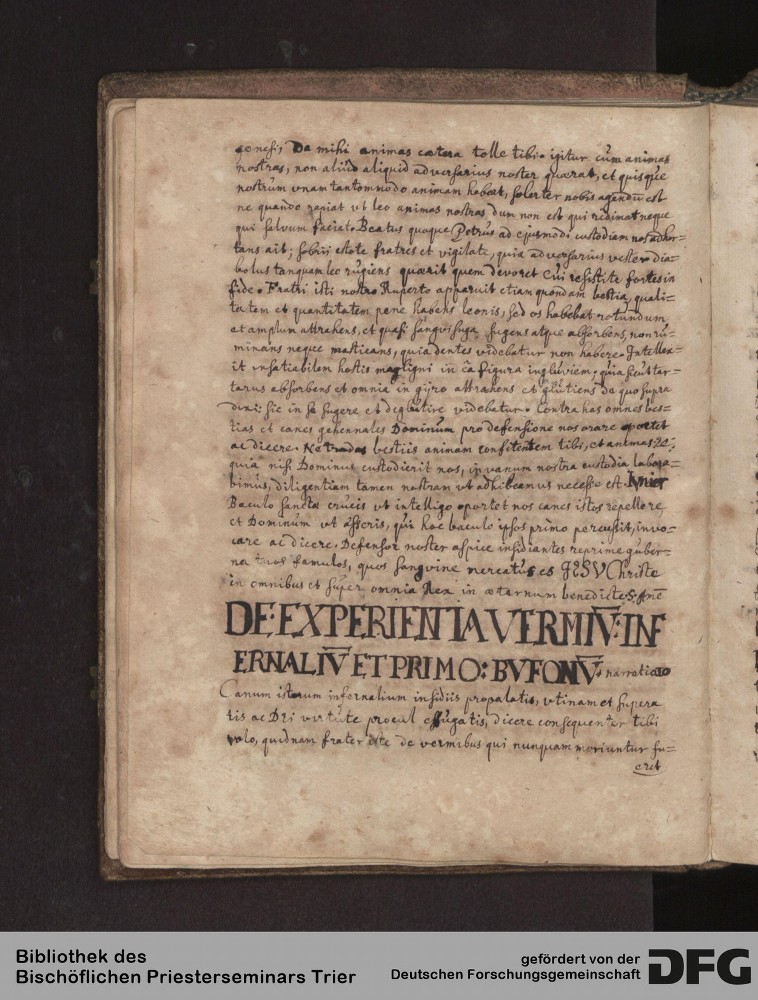 genesis, Da mihi animas cætera tolle tibi. igitur cùm animas
nostras, non aliùd aliquid adversarius noster quærat, et quisque
nostrûm vnam tantommodo animam habeat, solerter nobis agendū est
ne quando rapiat vt leo animas nostras dum non est qui redimat neque
qui salvum faciat. Beatus quoque Petrus ad ejusmodi custodiam nos adhor=
tans ait; sobrii estote fratres et vigilate, quia adversarius vester dia=
bolus tanquam leo rugiens quærit quem devoret cui resistite fortes in
fide. Fratri isti nostro Ruperto apparuit etiam quondam bestia, quali=
tatem et quantitatem pene habens leonis, sed os habebat rotundum
et amplum attrahens, et quasi sanguisuga sugens atque absorbens, non ru=
minans neque masticans, quia dentes videbatur non habere. Intellex=
it insatiabilem hostis maligni in eā figura ingluviem, quia sicut tar=
tarus absorbens et omnia in gyro attrahens et glutiens de quo supra
dixi: sic in se sugere et deglutire videbatur. Contra has omnes bes=
tias et canes gehennales Dominum pro defensione nos orare oportet
ac dicere. Ne tradas bestiis animam confitentem tibi, et animas &c;
quia nisi Dominus custodierit nos, in vanum nostra custodia labora=
bimus, diligentiam tamen nostram vt adhibeamus necesse est.
Baculo sanctæ crucis vt intelligo oportet nos canes istos repellere,
et Dominum vt asseris, qui hoc baculo ipsos primo percussit, invo=
care ac dicere. Defensor noster aspice insidiantes reprime guber=
na tuos famulos, quos sanguine mercatus es JESV Christe
in omnibus et super omnia Rex in æternum benedicte
DE EXPERIENTIA VERMIV̄ INF
ERNALIV̄ ET PRIMO: BVFONV̄. narratio
Canum istorum infernalium insidiis propalatis, vtinam et supera
tis ac DEi virtùte procul effugatis, dicere consequenter tibi
volo, quidnam frater iste de vermibus qui nunquam moriuntur fu=
erit
Bibliothek des
Bischöflichen Priesterseminars Trier
gefördert von der
Deutschen Forschungsgemeinschaft
DFG